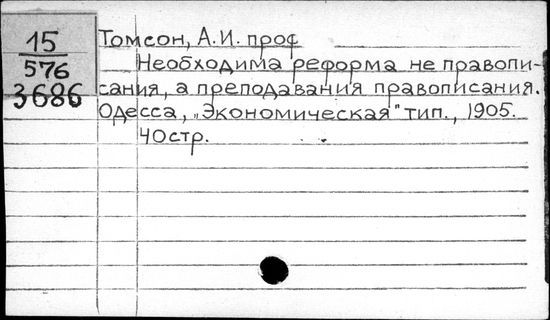 15
576
3686
Томсон, А.И. проф
Необходима реформа не правопи-
сания, а преподавания правописания.
Одесса, „Экономическая" тип., 1905.
40стр.